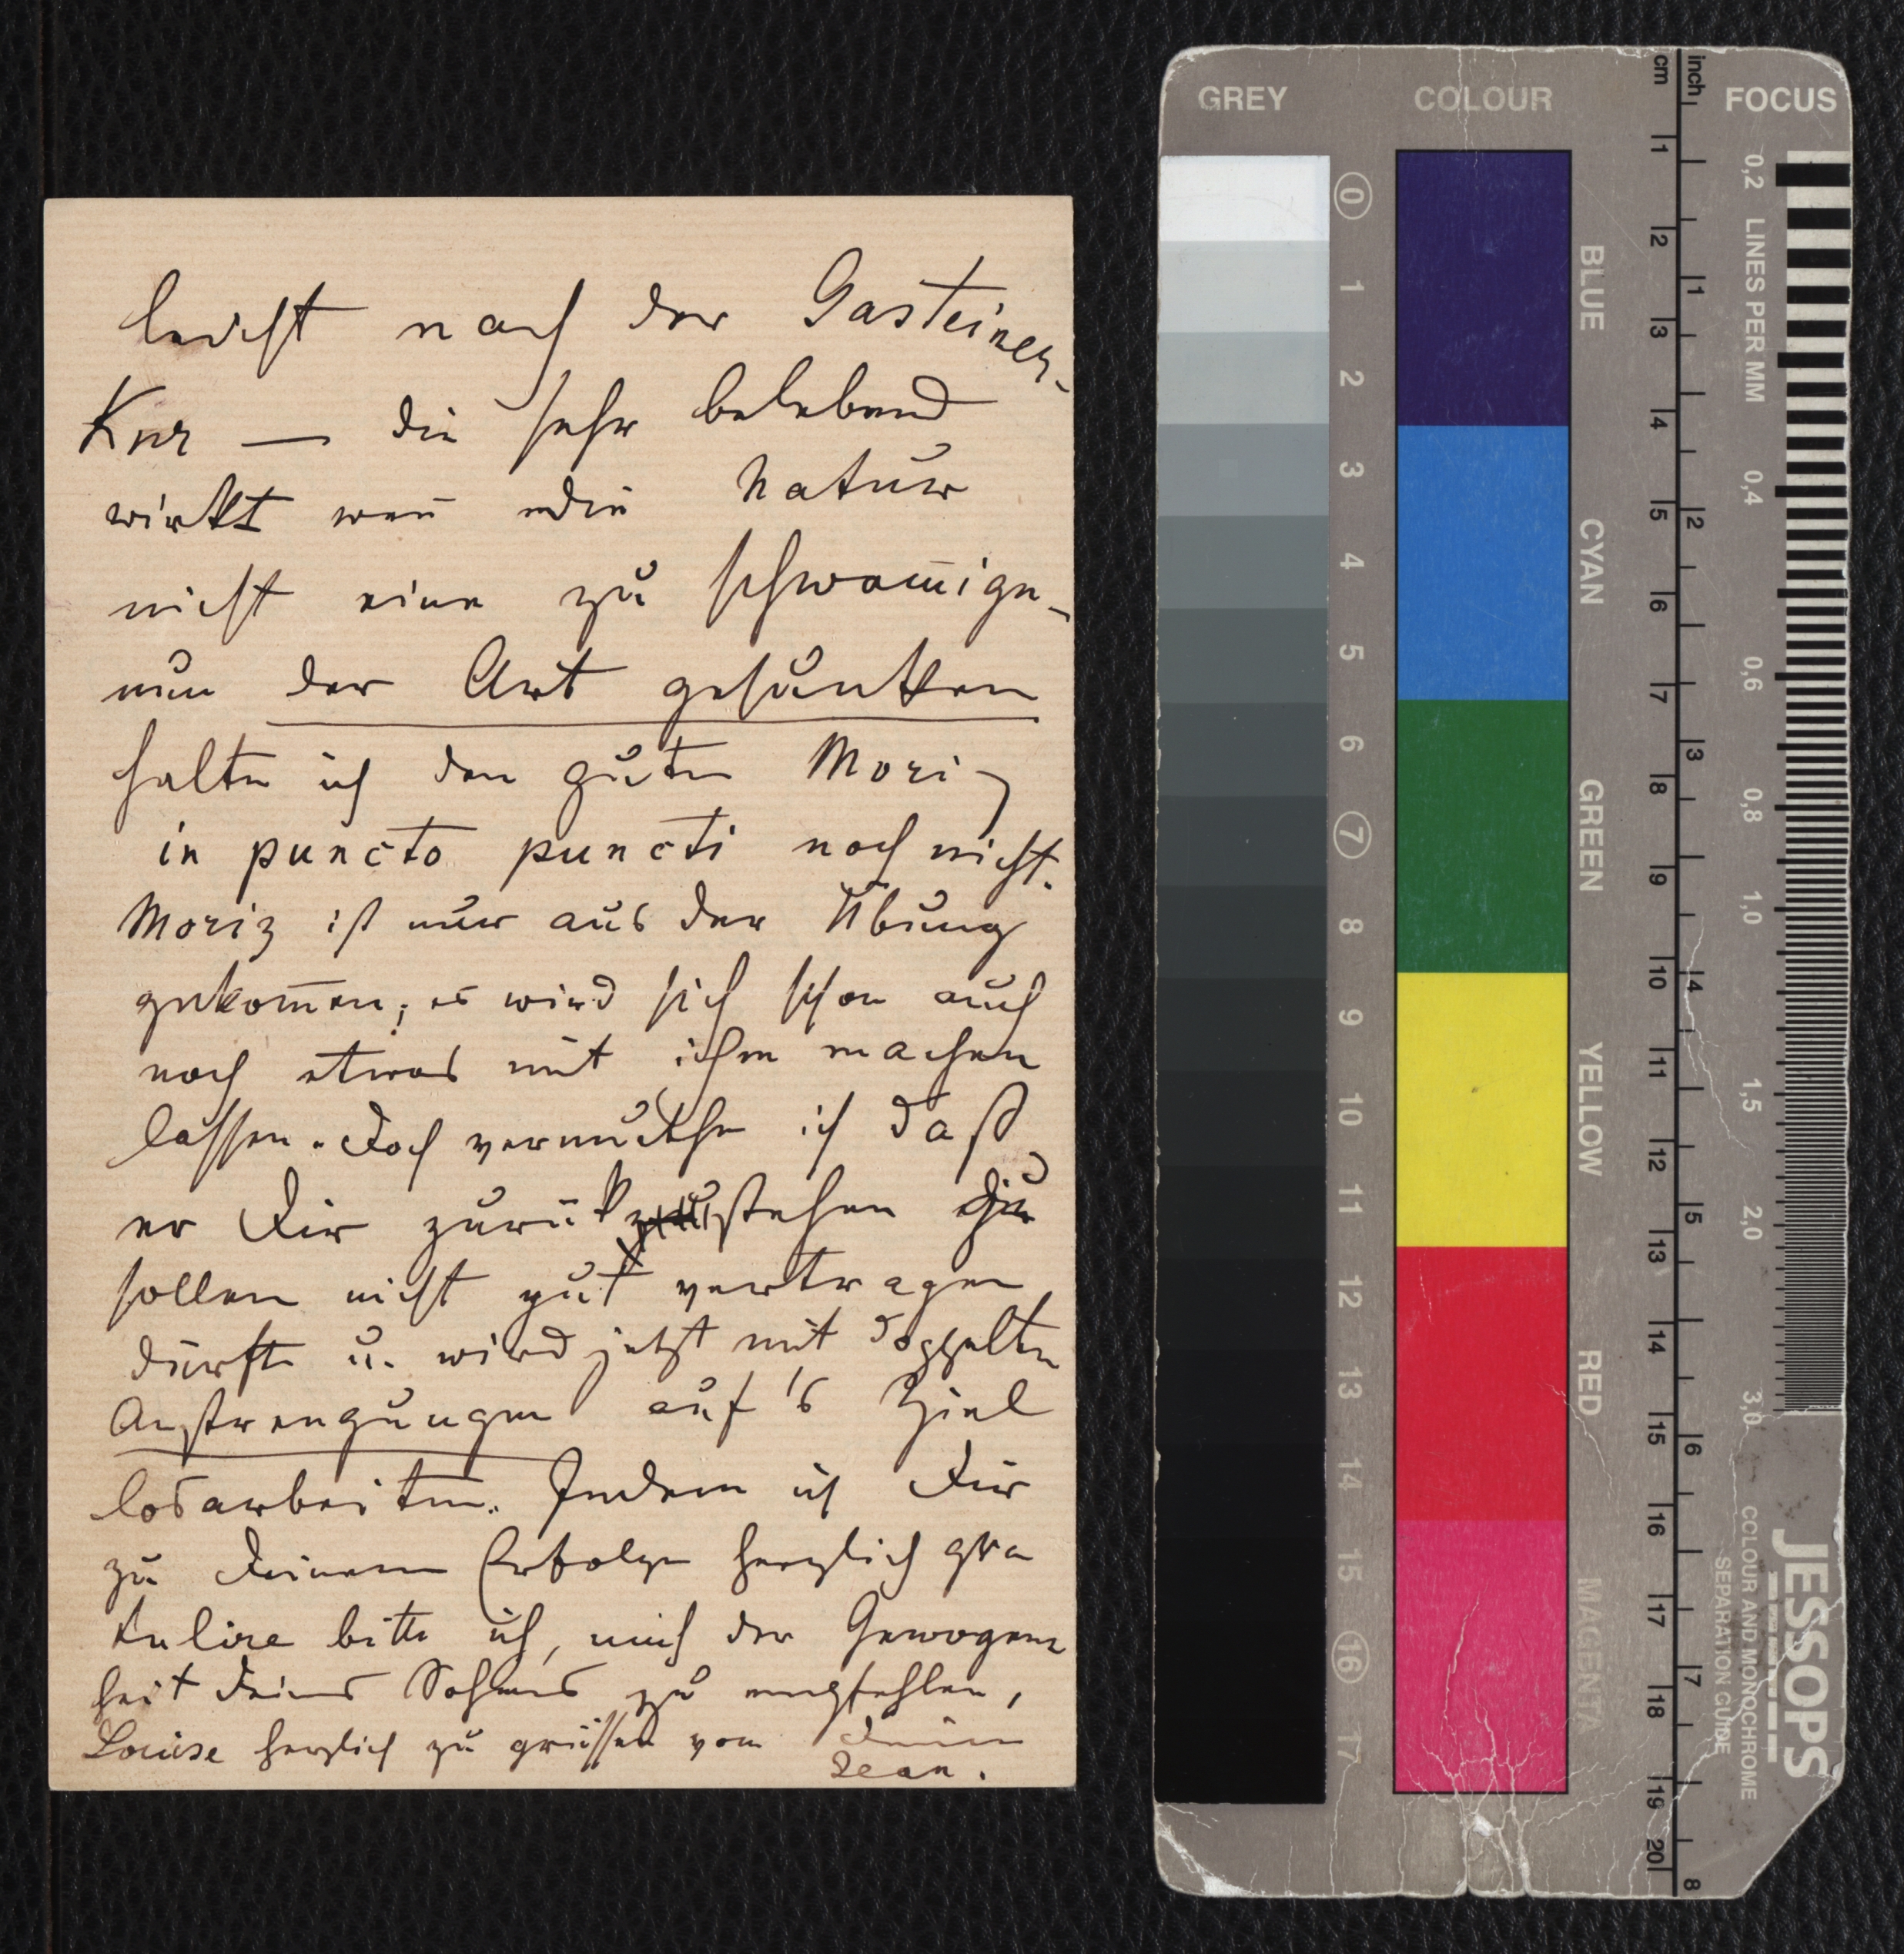 leicht nach der Gasteiner-
Kur — die sehr belebend
wirkt weñ die Natur
nicht eine zu schwam̃ige-
nun der Art gesunken
halte ich den guten Moriz
in puncto puncti noch nicht.
Moriz ist nur aus der Übung
gekom̃en; es wird sich schon auch
noch etwas mit ihm machen
lassen. Doch vermuthe ich daß
er Dir zurük stehen zu
sollen nicht gut vertragen
dürfte u. wird jetzt mit doppelten
Anstrengungen auf's Ziel
losarbeiten. Indem ich Dir
zu Deinem Erfolge herzlich gra
tulire bitte ich, mich der Gewogen
heit Deines Sohnes zu empfehlen,
Louise herzlich zu grüssen von Dein
Jean.
GREY
COLOUR
FOCUS
cm
inch
0 1 2 3 4 5 6 7 8 9 10 11 12 13 14 15 16 17
BLUE
CYAN
GREEN
YELLOW
RED
MAGENTA
1 2 3 4 5 6 7 8 9 10 11 12 13 14 15 16 17 18 19 20
1 2 3 4 5 6 7 8
0,2 LINES PER MM 0,4 0,6 0,8 1,0 1,5 2,0 3,0
JESSOPS
COLOUR AND MONOCHROME
SEPARATION GUIDE